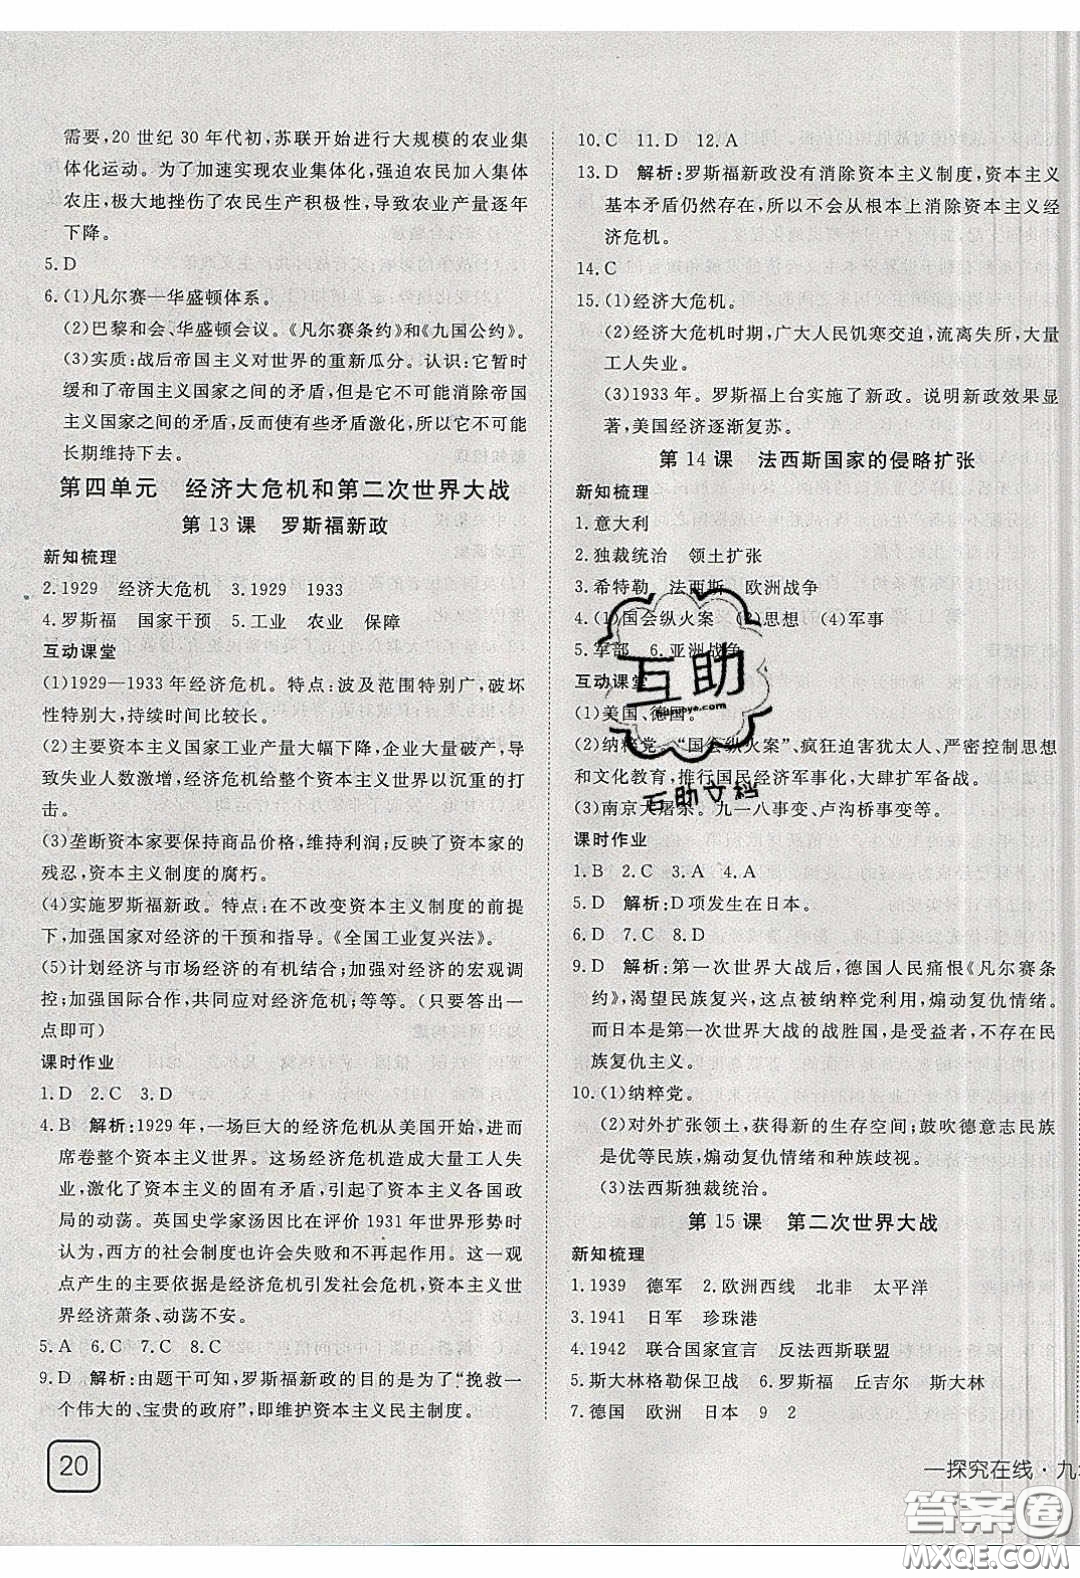 需要，20 世纪 30 年代初，苏联开始进行大规模的农业集
体化运动。为了加速实现农业集体化，强迫农民加入集体
农庄，极大地挫伤了农民生产积极性，导致农业产量逐年
下降。
5. D
6. (1)凡尔赛—华盛顿体系。
(2)巴黎和会、华盛顿会议。《凡尔赛条约》和《九国公约》。
(3)实质：战后帝国主义对世界的重新瓜分。认识：它暂时
缓和了帝国主义国家之间的矛盾，但是它不可能消除帝国
主义国家之间的矛盾，反而使有些矛盾激化，所以它不可能
长期维持下去。
第四单元　经济大危机和第二次世界大战
第 13 课　罗斯福新政
新知梳理
2. 1929　经济大危机　3. 1929　1933
4. 罗斯福　国家干预　5. 工业　农业　保障
互动课堂
(1)1929—1933 年经济危机。特点：波及范围特别广，破坏
性特别大，持续时间比较长。
(2)主要资本主义国家工业产量大幅下降，企业大量破产，导
致失业人数激增，经济危机给整个资本主义世界以沉重的打
击。
(3)垄断资本家要保持商品价格，维持利润；反映了资本家的
残忍，资本主义制度的腐朽。
(4)实施罗斯福新政。特点：在不改变资本主义制度的前提
下，加强国家对经济的干预和指导。《全国工业复兴法》。
(5)计划经济与市场经济的有机结合；加强对经济的宏观调
控；加强国际合作，共同应对经济危机；等等。(只要答出一
点即可)
课时作业
1. D　2. C　3. D
4. B　解析：1929 年，一场巨大的经济危机从美国开始，进而
席卷整个资本主义世界。这场经济危机造成大量工人失
业，激化了资本主义的固有矛盾，引起了资本主义各国政
局的动荡。英国史学家汤因比在评价 1931 年世界形势时
认为，西方的社会制度会失败和不再起作用。这一观
点产生的主要依据是经济危机引发社会危机，资本主义世
界经济萧条、动荡不安。
5. A　6. C　7. C　8. C
9. D　解析：由题干可知，罗斯福新政的目的是为了“挽救一
个伟大的、宝贵的政府”，即维护资本主义民主制度。
20
10. C　11. D　12. A
13. D　解析：罗斯福新政没有消除资本主义制度，资本主义
基本矛盾仍然存在，所以不会从根本上消除资本主义经
济危机。
14. C
15. (1)经济大危机。
(2)经济大危机时期，广大人民饥寒交迫，流离失所，大量
工人失业。
(3)1933 年。罗斯福上台实施了新政。说明新政效果显
著，美国经济逐渐复苏。
第 14 课　法西斯国家的侵略扩张
新知梳理
1. 意大利
2. 独裁统治　领土扩张
3. 希特勒　法西斯　欧洲战争
4. (1)国会纵火案　(3)思想　(4)军事
5. 军部　6. 亚洲战争
互动课堂
(1)美国、德国。
(2)纳粹党。“国会纵火案”、疯狂迫害犹太人、严密控制思想
和文化教育，推行国民经济军事化，大肆扩军备战。
(3)南京大屠杀。九一八事变、卢沟桥事变等。
课时作业
1. B　2. C　3. A　4. A
5. D　解析：D 项发生在日本。
6. D　7. C　8. D
9. D　解析：第一次世界大战后，德国人民痛恨《凡尔赛条
约》，渴望民族复兴，这种心态被纳粹党利用，煽动复仇情绪。
而日本是第一次世界大战的战胜国，是受益者，不存在民
族复仇主义。
10. (1)纳粹党。
(2)对外扩张领土，获得新的生存空间；鼓吹德意志民族
是优等民族，煽动复仇情绪和种族歧视。
(3)法西斯独裁统治。
第 15 课　第二次世界大战
新知梳理
1. 1939　德军　2. 欧洲西线　北非　太平洋
3. 1941　日军　珍珠港
4. 1942　联合国家宣言　反法西斯联盟
5. 斯大林格勒保卫战　6. 罗斯福　丘吉尔　斯大林
7. 德国　欧洲　日本　9　2
—探究在线·九
互助
互助文档
答案圈
MXQE.COM